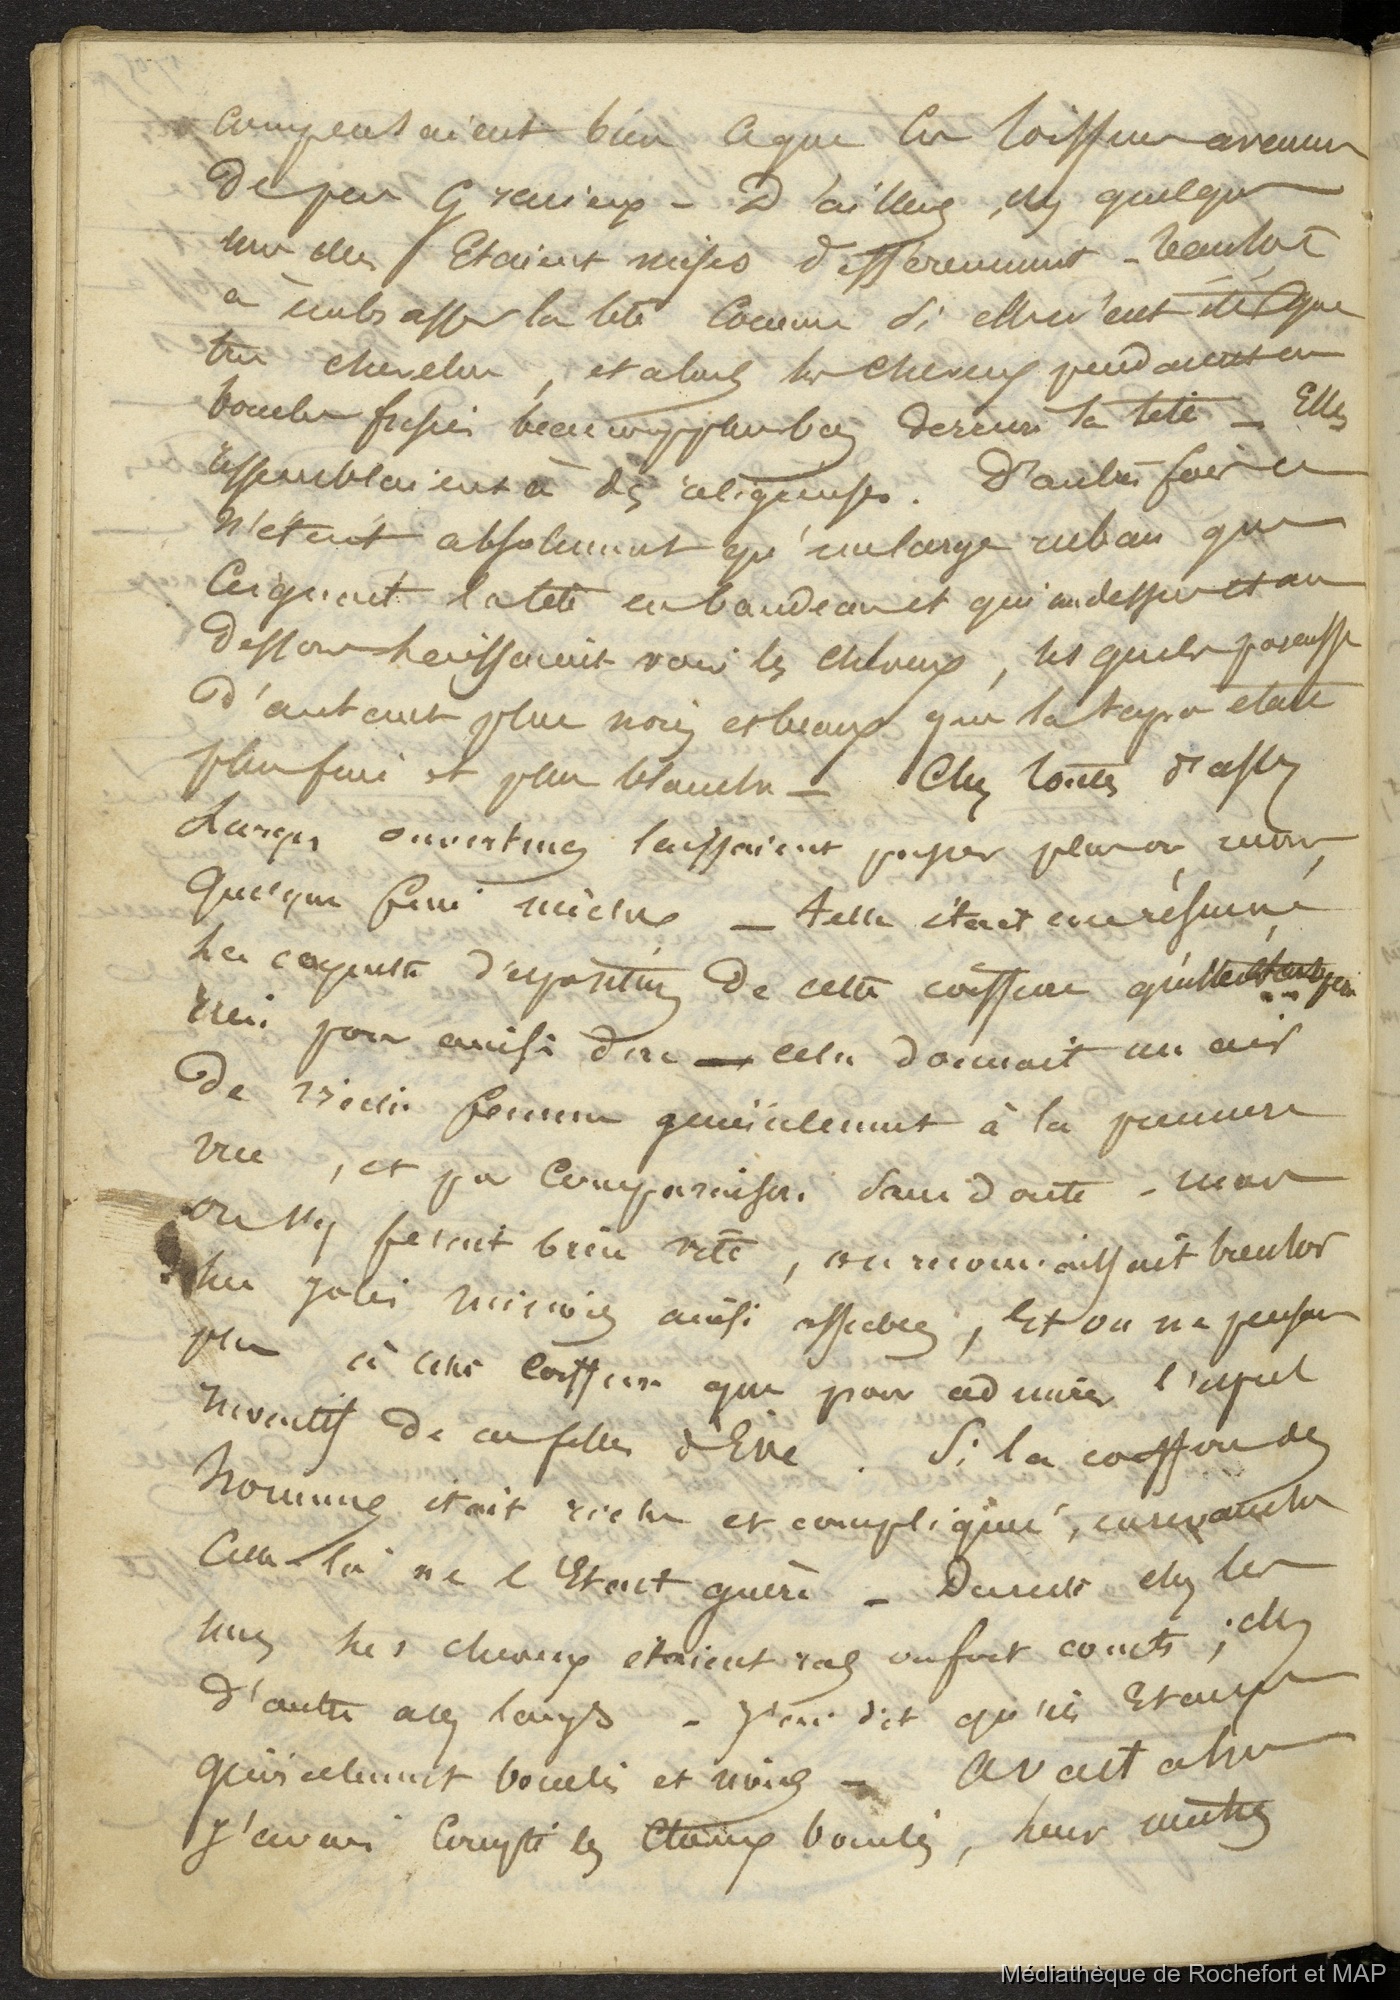 compensaient bien ce que les coiffures avaient
de peu gracieux - D'ailleurs, chez quelques
unes elles Etaient mises differemment - de
à embrasser la tête comme si elles n'eut été que
très chevelue, et alors les cheveux pendaient en
boucles frisées beaucoup plus bas derrière la tête - Elles
ressemblaient à des religieuses. D'autres fois ce
n'était absolument qu'un large ruban que
ceignait la tête en bandeau et qui au dessus et au
dessous laissaient voir les cheveux, lesquels
d'autant plus noirs et beaux que la était
plus fine et plus blanche - Chez toutes d'assez
Larges ouvertures laissaient passer plus ou moins
quelques fines mèches - telle était en résumé
les disposition de cette coiffure
rien pour ainsi dire - cela donnait un air
de vieille femme généralement à la première
vue, et par comparaison sans doute - mais
on s'y faisait bien vite, on reconnaissait bientôt
les jolis minois ainsi affublés, Et on ne pensait
plus à cette coiffure que pour admirer l'esprit
inventif de ces filles d'Eve. Si la coiffure des
hommes était riche et compliquée, en revanche
Celle-là ne l'Etait guère - Dessous chez les
uns les cheveux étaient ras ou fort courts ; chez
d'autres assez longs - J'ai dit qu'ils Etaient
généralement bouclés et noirs - Avant cela
j'avais compté les bouclés, leurs